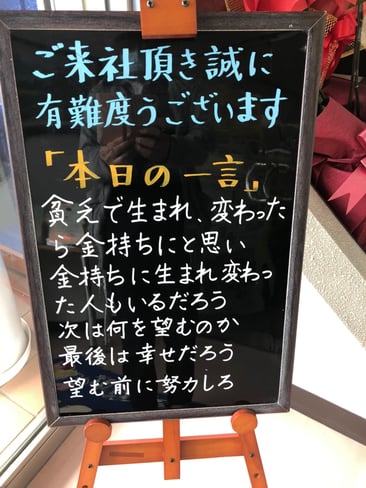 ご来社頂き誠に
有難度うございます
「本日の一言」
貧えで生まれ、変わった
ら金持ちにと思い
金持ちに生まれ変わっ
た人もいるだろう
次は何を望むのか
最後は幸せだろう
望む前に努力しろ